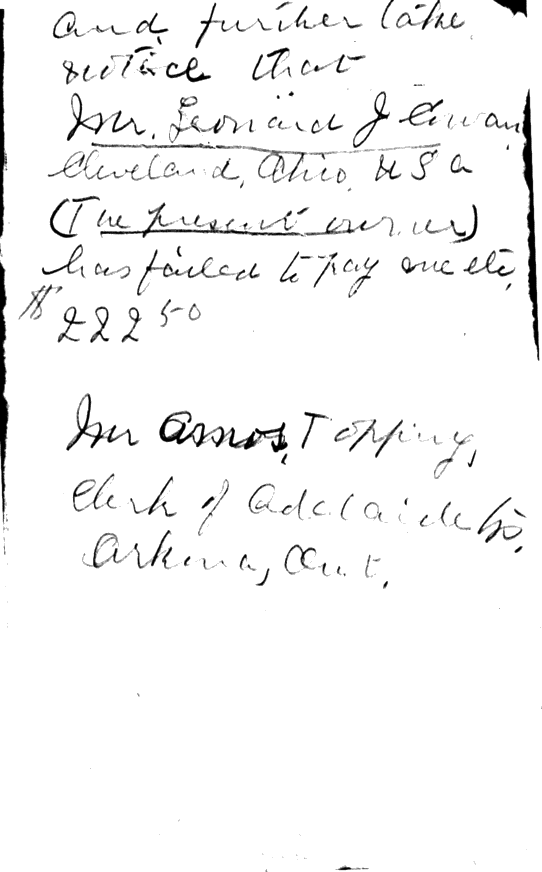 and further take
notice that
Mr. Leonard J
Cleveland, Ohio, U S a
(The present owner)
has failed to pay me etc,
$ 222 50
Mr Amos, Topping,
Clerk of Adelaide Tp.
Arkona, Ont.